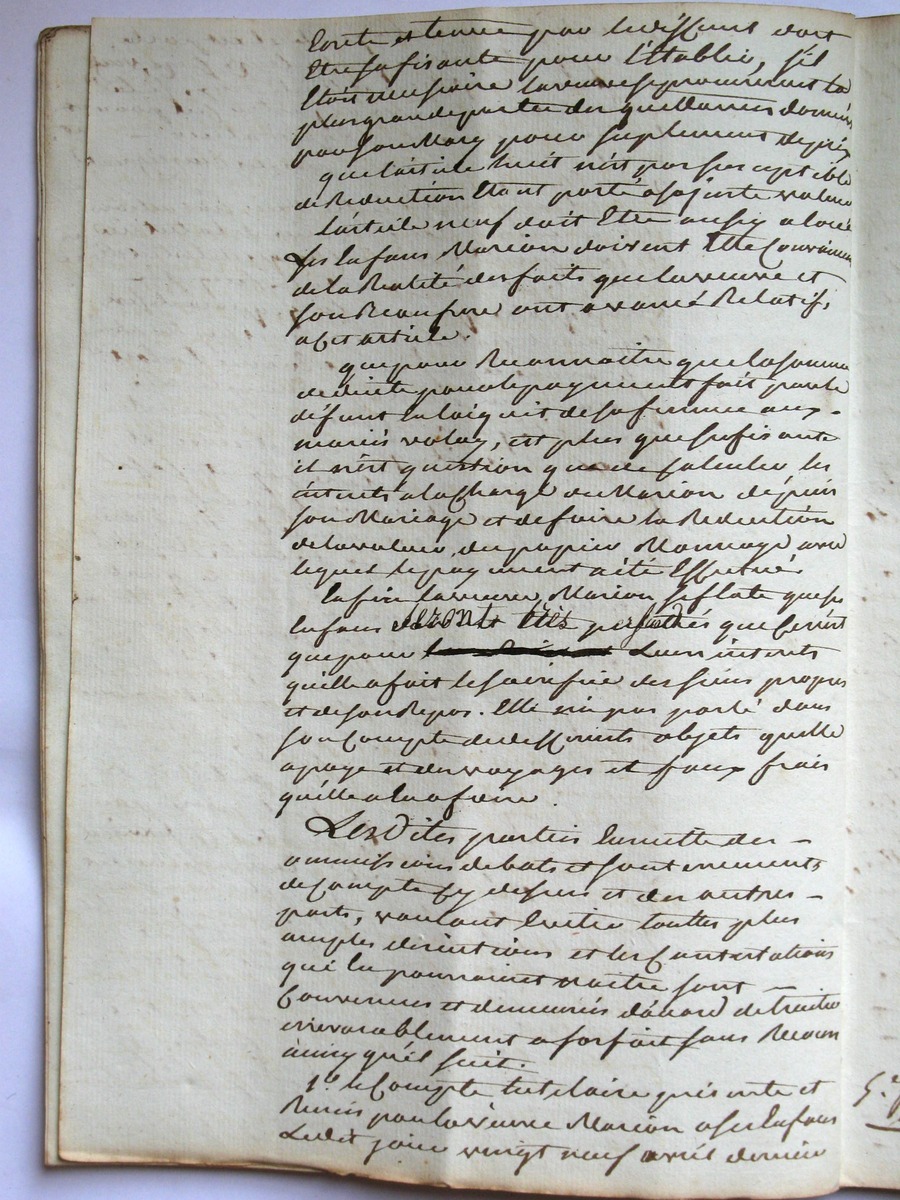 écrite et tenue par le déffunt doit
Etre sufisante pour l'établir, s'il
étoit nécessaire la veuve se procureroit la
plus grande partie des quittances données
par son Mary pour suplement de prix
que l'article huit n'est pas susceptible
de Reduction étant porté a sa juste valeur
l'article neuf doit Etre aussy aloué
Les Enfans Marion doivent Etre Convaincus
de la Realité des faits que la veuve et
son Beaufrere ont avancé Relatifs
a Cet article.
que pour Reconnaitre que la somme
deduite pour le payement fait par le
défunt du légat de sa femme aux
mariés valay, est plus que sufisante
il n'est question que de Calculer les
interets a la Charge du Marion depuis
son Mariage et de faire la Reduction
de la valeur du papier Monnoye avec
lequel le payement a été Effectué.
Enfin la veuve Marion se flate que ses
Enfans seront très persuadés que Ce n'est
que pour Leurs interets
qu'elle a fait le sacrifice des siens propres
et de son Repos. Elle n'a pas porté dans
son Compte de differents objets qu'elle
a payé et des voyages et faux frais
qu'elle a eu a faire.
Lesdites parties Ensuitte des
ommissions debats et soutenements
de Compte Cy dessus et des autres
parts, voulant Eviter touttes plus
amples discutions et les Contestations
qui En pourroient naitre sont
Convenues et demeurés d'acord de traiter
irrevocablement a forfait sans Recour
ainsy qu'il suit.
1° le Compte tutelaire présenté et
Remis par la veuve Marion a ses Enfans
Ledit jour vingt neuf avril dernier